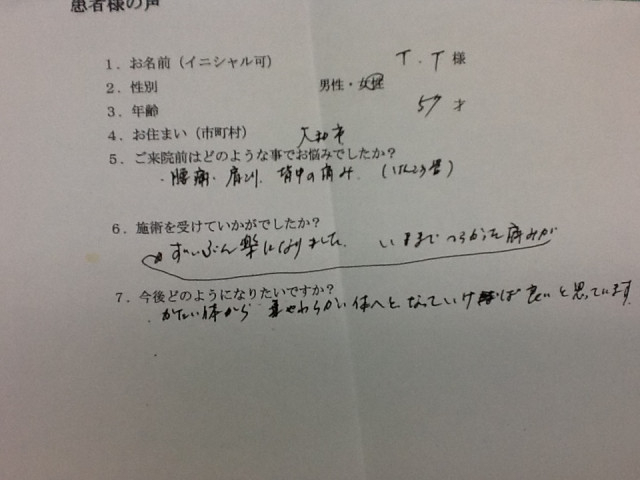 患者様の声
1．お名前（イニシャル可） T．T 様
2．性別 男性・女性
3．年齢 57 才
4．お住まい（市町村） 大和市
5．ご来院前はどのような事でお悩みでしたか？
・腰痛・肩こり、背中の痛み、
6．施術を受けていかがでしたか？
ずいぶん楽になりました。 いままでつらかった痛みが
7．今後どのようになりたいですか？
・かたい体から やわらかい体へとなっていければ良いと思っています